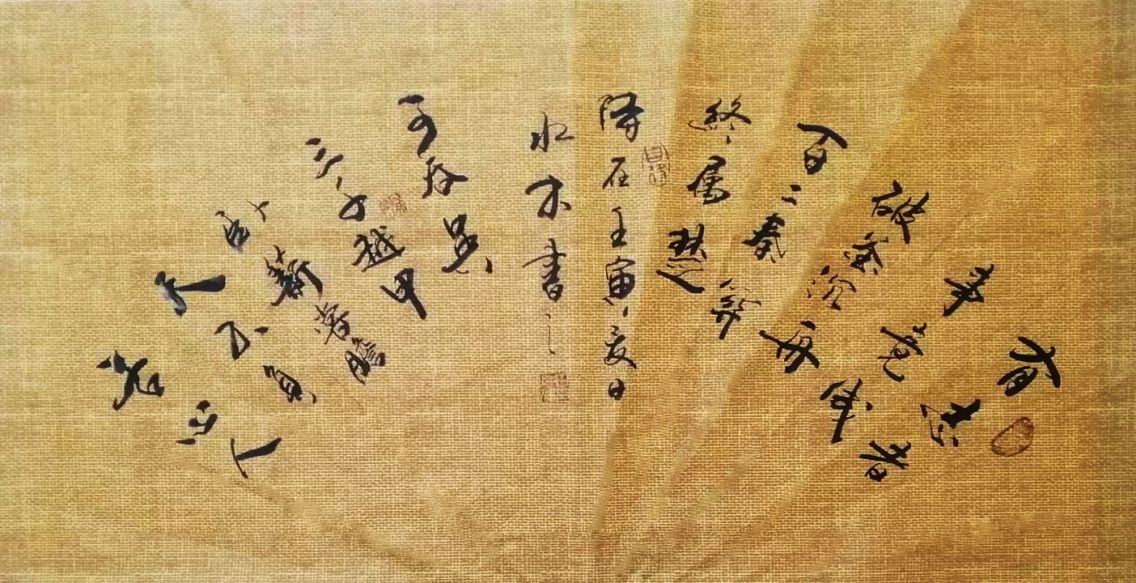 有志者
事竟成
破釜沉舟
百二秦關
終属楚
苦心人
天不負
卧薪嘗膽
三千越甲
可吞吴
時在壬寅夏日
水木書之